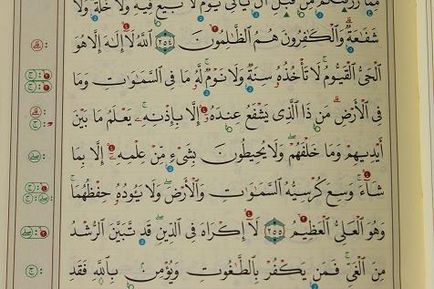 مِّمَّا رَزَقْنَٰكُم مِّن قَبْلِ أَن يَأْتِىَ يَوْمٌ لَّا بَيْعٌ فِيهِ وَلَا خُلَّةٌ وَلَا
شَفَٰعَةٌ وَالْكَٰفِرُونَ هُمُ الظَّٰلِمُونَ ٢٥٤ اللَّهُ لَا إِلَٰهَ إِلَّا هُوَ
الْحَىُّ الْقَيُّومُ لَا تَأْخُذُهُ سِنَةٌ وَلَا نَوْمٌ لَّهُ مَا فِى السَّمَٰوَٰتِ وَمَا
فِى الْأَرْضِ مَن ذَا الَّذِى يَشْفَعُ عِندَهُ إِلَّا بِإِذْنِهِ يَعْلَمُ مَا بَيْنَ
أَيْدِيهِمْ وَمَا خَلْفَهُمْ وَلَا يُحِيطُونَ بِشَىْءٍ مِّنْ عِلْمِهِ إِلَّا بِمَا
شَاءَ وَسِعَ كُرْسِيُّهُ السَّمَٰوَٰتِ وَالْأَرْضَ وَلَا يَـُٔودُهُ حِفْظُهُمَا
وَهُوَ الْعَلِىُّ الْعَظِيمُ ٢٥٥ لَا إِكْرَاهَ فِى الدِّينِ قَد تَّبَيَّنَ الرُّشْدُ
مِنَ الْغَىِّ فَمَن يَكْفُرْ بِالطَّٰغُوتِ وَيُؤْمِن بِاللَّهِ فَقَدِ